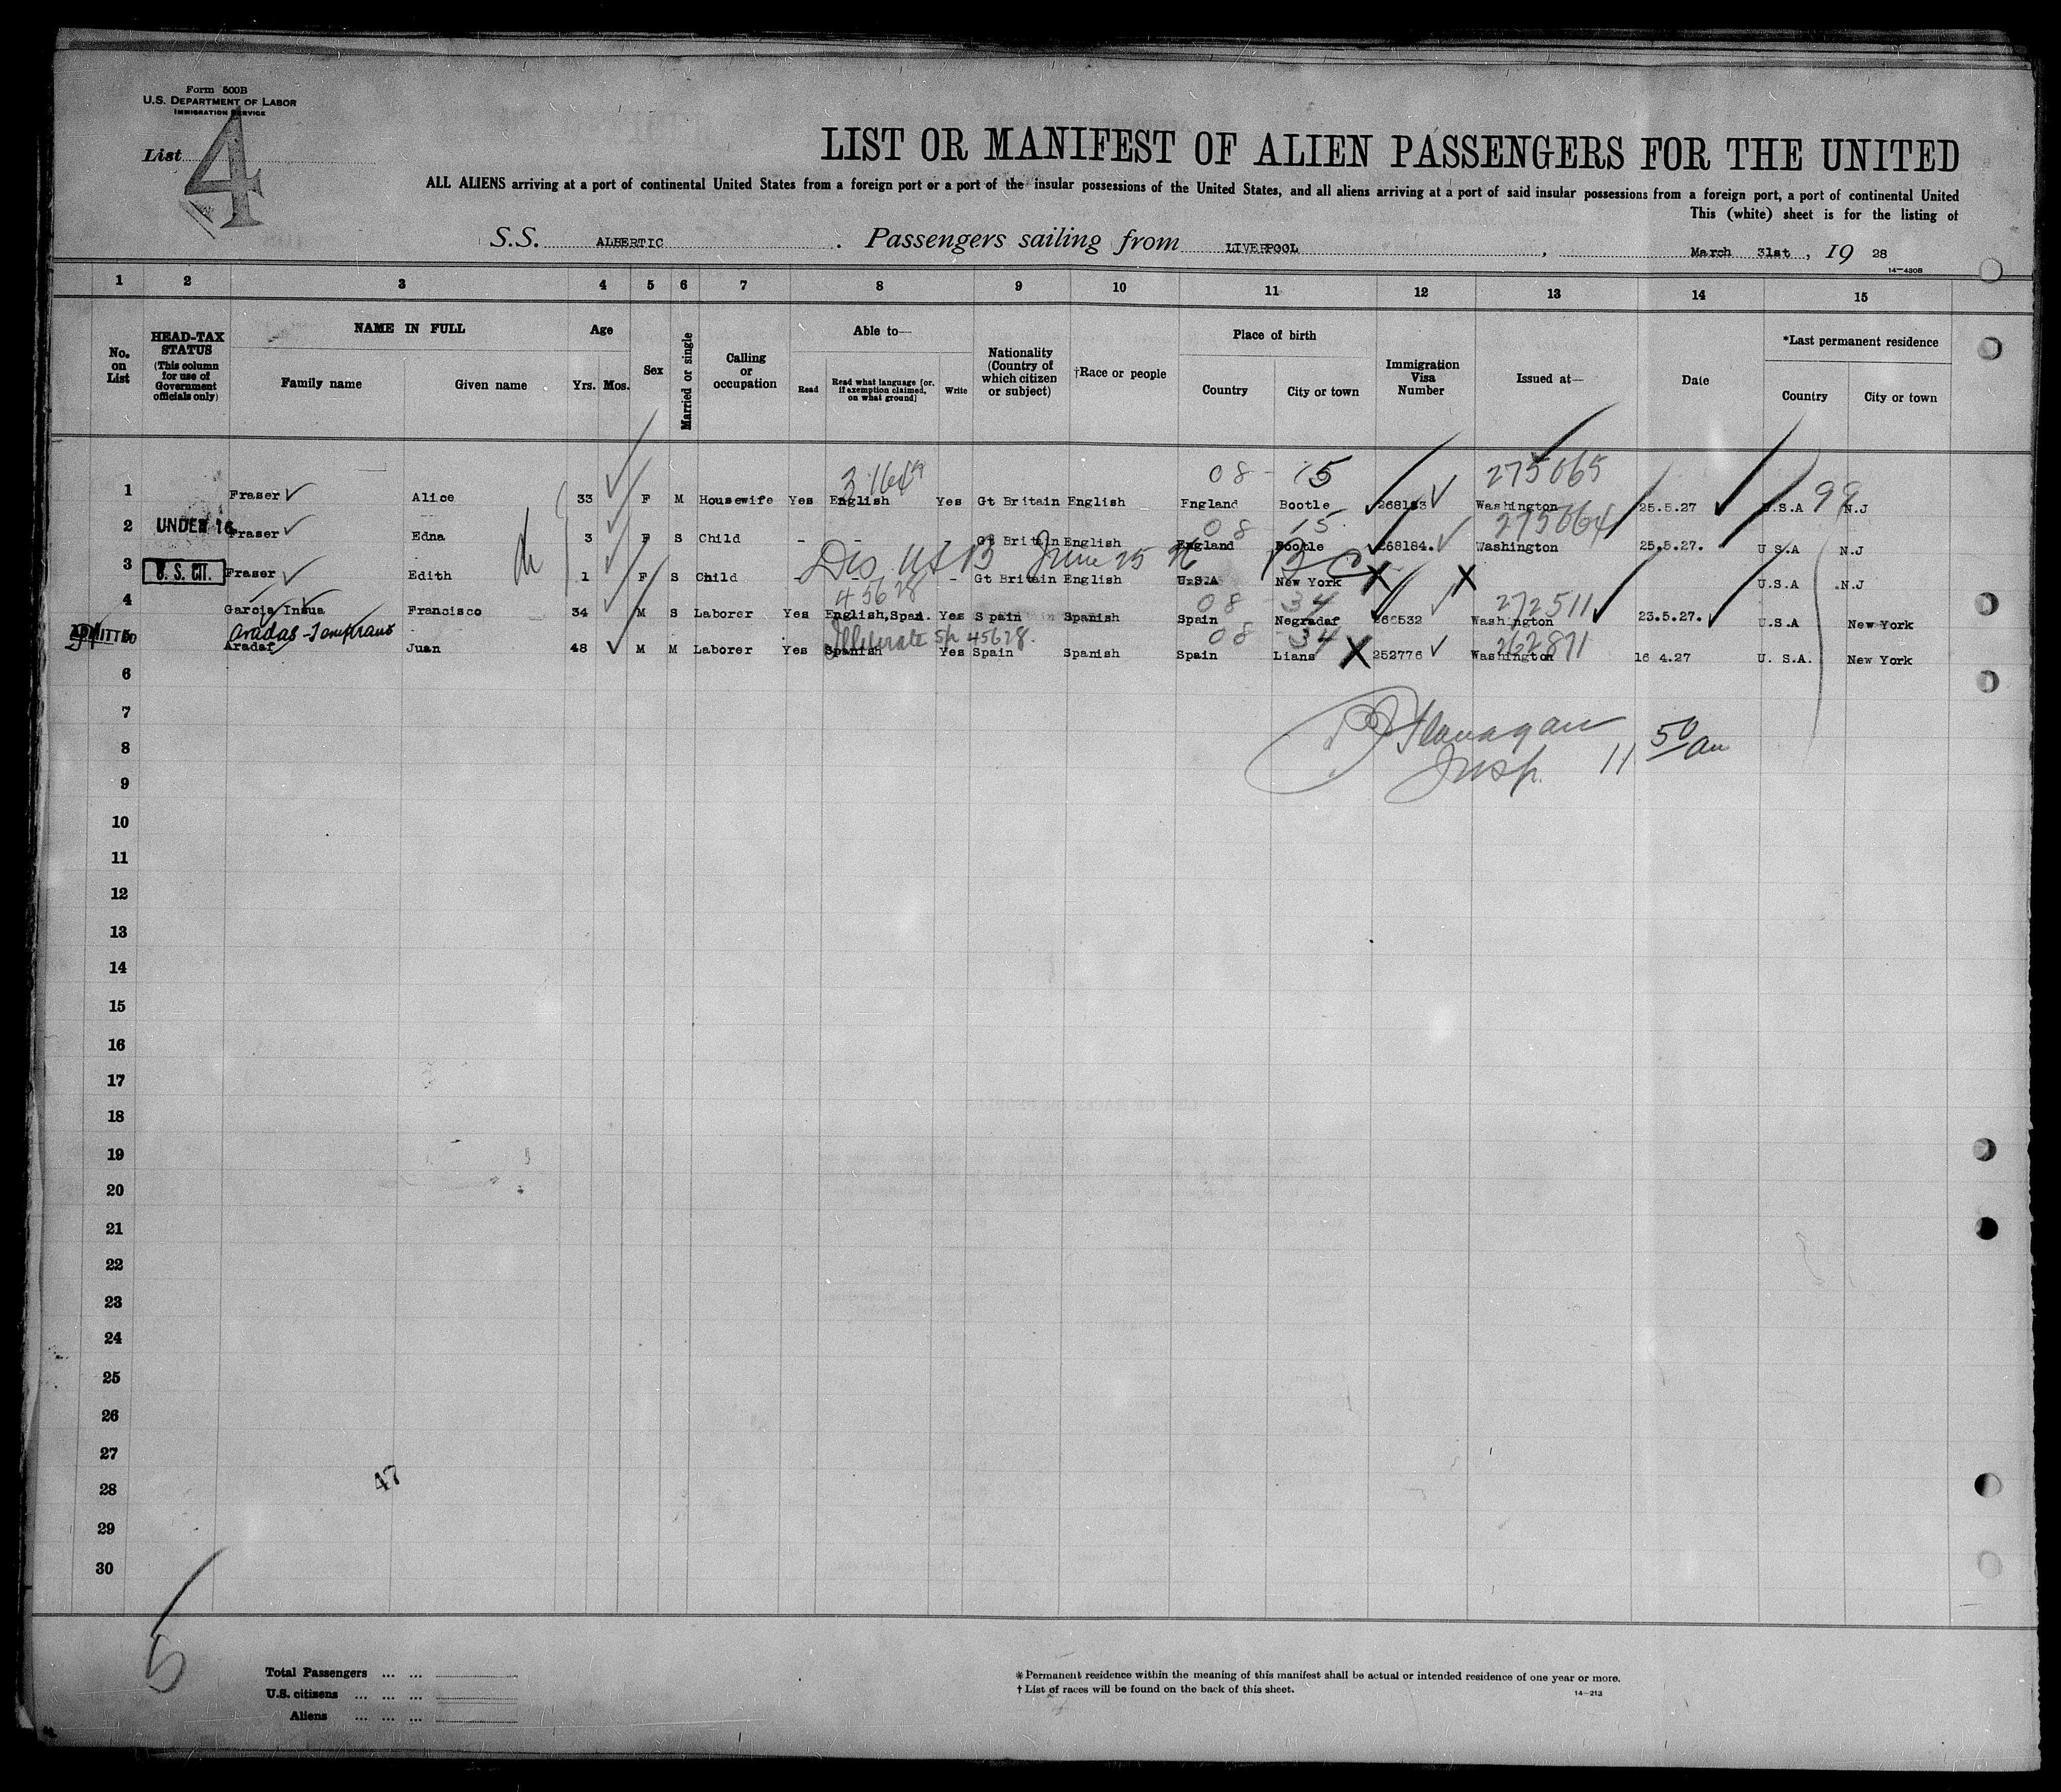 Form 500B
U.S. DEPARTMENT OF LABOR
IMMIGRATION SERVICE
List 4
LIST OR MANIFEST OF ALIEN PASSENGERS FOR THE UNITED
ALL ALIENS arriving at a port of continental United States from a foreign port or a port of the insular possessions of the United States, and all aliens arriving at a port of said insular possessions from a foreign port, a port of continental United
This (white) sheet is for the listing of
S.S. ALBERTIC . Passengers sailing from LIVERPOOL , March 31st , 19 28
14—4308
1 2 3 4 5 6 7 8 9 10 11 12 13 14 15
No. on List
HEAD-TAX STATUS (This column for use of Government officials only)
NAME IN FULL
Family name Given name
Age
Yrs. Mos.
Sex
Married or single
Calling or occupation
Able to—
Read Read what language [or, if exemption claimed, on what ground] Write
Nationality (Country of which citizen or subject)
†Race or people
Place of birth
Country City or town
Immigration Visa Number
Issued at—
Date
*Last permanent residence
Country City or town
08 - 15 275065
1 Fraser Alice 33 F M Housewife Yes English Yes Gt Britain English England Bootle 268183 Washington 25.5.27 U.S.A 99 N.J
08 15 275064
2 UNDER 16 Fraser Edna 3 F S Child - - - Gt Britain English England Bootle 268184. Washington 25.5.27. U S.A N.J
Dis June 25 B C
3 U. S. CIT. Fraser Edith 1 F S Child - - Gt Britain English U.S.A New York X X U.S.A .N.J
45628 08 - 34 272511
4 Garcia Insua Francisco 34 M S Laborer Yes English,Span. Yes Spain Spanish Spain Negradaf 266532 Washington 23.5.27. U.S.A New York
Illiterate Sp 45628. 08 34 262871
5 ADMITTED Aradaf Juan 48 M M Laborer Yes Spanish Yes Spain Spanish Spain Lians X 252776 Washington 16 4.27 U. S.A. New York
6
7
Flanagan
8
Insp. 11 50 am
9
10
11
12
13
14
15
16
17
18
19
20
21
22
23
24
25
26
27
47
28
29
30
5
Total Passengers ... ...
U.S. citizens ... ... ...
Aliens ... ... ...
* Permanent residence within the meaning of this manifest shall be actual or intended residence of one year or more.
† List of races will be found on the back of this sheet.
14—213